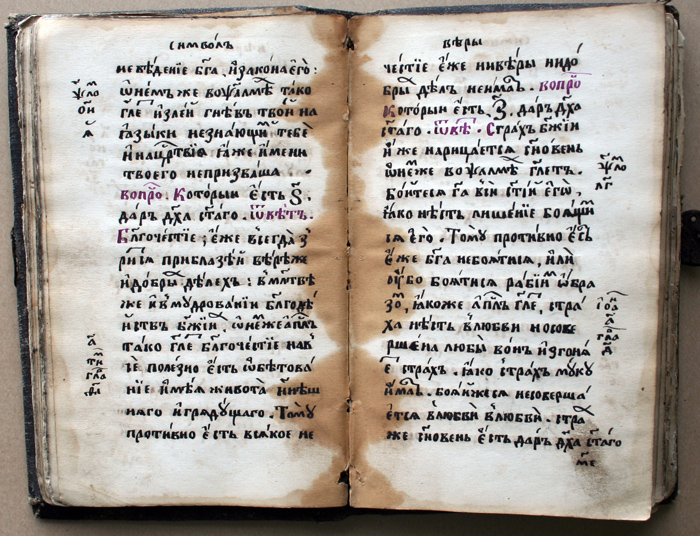 симво́лъ
невѣ́дение бг҃а, и҆ закона є҆го̀:
ѡ҆ нем же во ѱалмѣ̀ тако
гл҃е и҆злей гнѣ́въ тво́й на
ꙗ҆зы́ки незна́ющиꙗ тебѐ
и҆ на црⷭ҇твїꙗ ꙗ҆́же и҆́мени
твоего̀ непризва́ша.
вопро́ⷭ. Кото́рыи є҆́сть ѕ҃.
даръ дх҃а ст҃аго. ѿвѣ́тъ.
Бл҃гоче́стїе; є҆́же всегда̀ зⷬ҇
рится при бл҃зей вѣ́ре же
и҆ до́бры дѣ́лехъ: в мл҃твѣ
же и҆ в мудровании бл҃годѣ́
йствъ бж҃їи, ѡ҆ не́же а҆пⷭ҇лъ
та́ко гл҃е бл҃гоче́стїе на в
сѐ поле́зно є҆́сть ѡ҆бѣтова́
нїе и҆мѣ́ѧ живота̀ нн҃ѣш
нѧго и҆ грѧду́щаго. Тому̀
проти́вно є҆́сть всѧ́кое не
ѱ҃ло
ѡ҃и
а҃
ти
гла
вѣ́ры
че́стїе є҆́же ни вѣ́ры ни до́
бры дѣ́лъ неима́ть. вопро́ⷭ
Кото́рыи є҆́сть. з҃. да́ръ дх҃а
ст҃аго. ѿвѣ́. Стра́хъ бж҃їи
и҆́же нарица́етсѧ сн҃овень
ѡ҆ не́мже во ѱалмѣ̀ гл҃етъ.
Бо́йтесѧ гд҃а вси̑ ст҃їи є҆гѡ̀,
ꙗ҆́ко нѣ́сть лише́нїе боѧ́щи
сѧ є҆го̀. Тому̀ проти́вно є҆́сть
є҆́же бг҃а небоѧ́тисѧ, и҆лѝ
ѹ҆́бо боѧ́тисѧ ра́бїиⷨ ѡ҆бра
зоⷨ, ꙗ҆́коже а҆пⷭ҇лъ гл҃е, стра́
ха нѣ́сть в любви̑ но сове
рше́на любы̀ во́нъ и҆згонѧ́
є стра́хъ. ꙗ҆́ко стра́хъ му́ку
и҆́мать. Боѧ́йжесѧ несоверша́
є҆тсѧ в любви̑ в любви̑. Стра
же сн҃овень є҆́сть да́ръ дх҃а ст҃аго
ѱ҃ло
лг҃